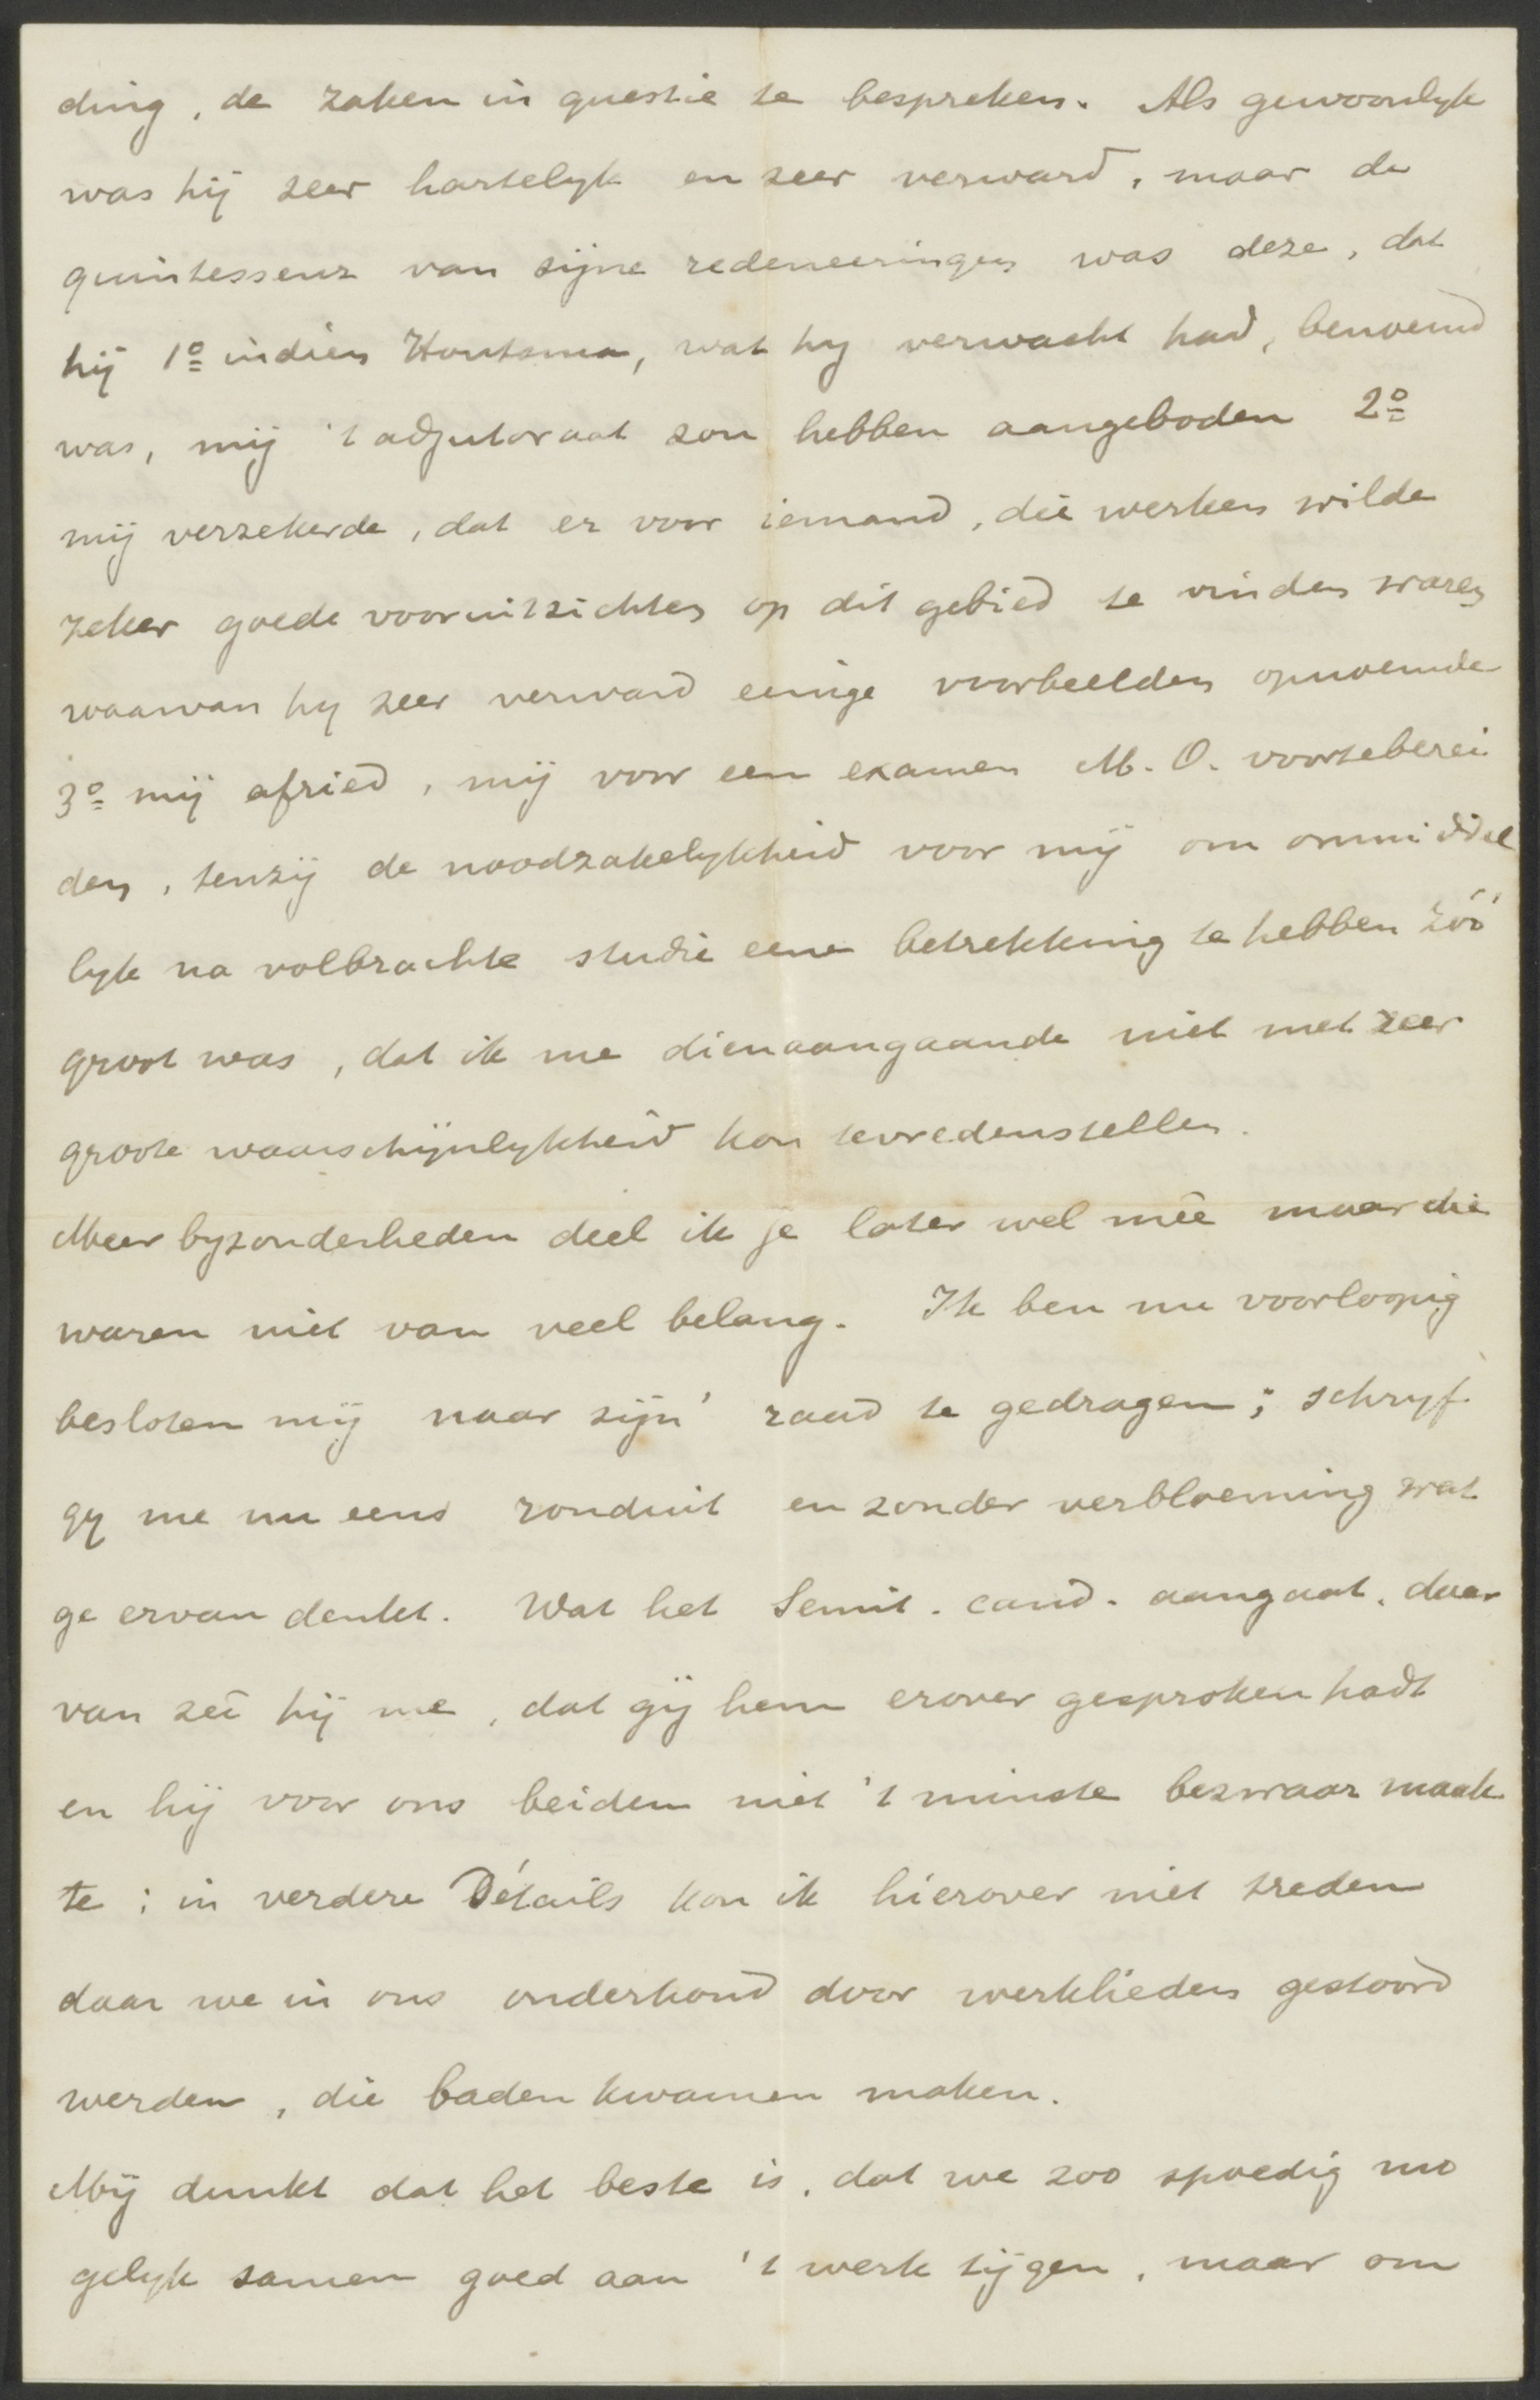 ding, de zaken in questie te bespreken. Als gewoonlyk
was hij zeer hartelyk en zeer verward, maar de
quintessenz van zijne redeneeringen was deze, dat
hij 1º indien Houtsma, wat hy verwacht had, benoemd
was, mij 't adjutoraat zou hebben aangeboden 2º
mij verzekerde, dat er voor iemand, die werken wilde
zeker goede vooruitzichten op dit gebied te vinden waren
waarvan hy zeer verward eenige voorbeelden opnoemde
3º mij afried, mij voor een examen M. O. voortebereí
den, tenzij de noodzakelykheid voor mij om onmiddel
lyk na volbrachte studie eene betrekking te hebben zóó
groot was, dat ik me dienaangaande niet met zeer
groote waarschijnlykheid kon tevredenstellen.
Meer byzonderheden deel ik je later wel mêe maar die
waren niet van veel belang. Ik ben nu voorloopig
besloten mij naar zijn' raad te gedragen; schryf
gy me nu eens ronduit en zonder verbloeming wat
ge ervan denkt. Wat het Semit. cand. aangaat, daar
van zei hij me, dat gij hem erover gesproken hadt
en hij voor ons beiden niet 't minste bezwaar maak
te; in verdere Détails kon ik hierover niet treden
daar we in ons onderhoud door werklieden gestoord
werden, die baden kwamen maken.
Mij dunkt dat het beste is, dat we zoo spoedig mo
gelyk samen goed aan 't werk tijgen, maar om